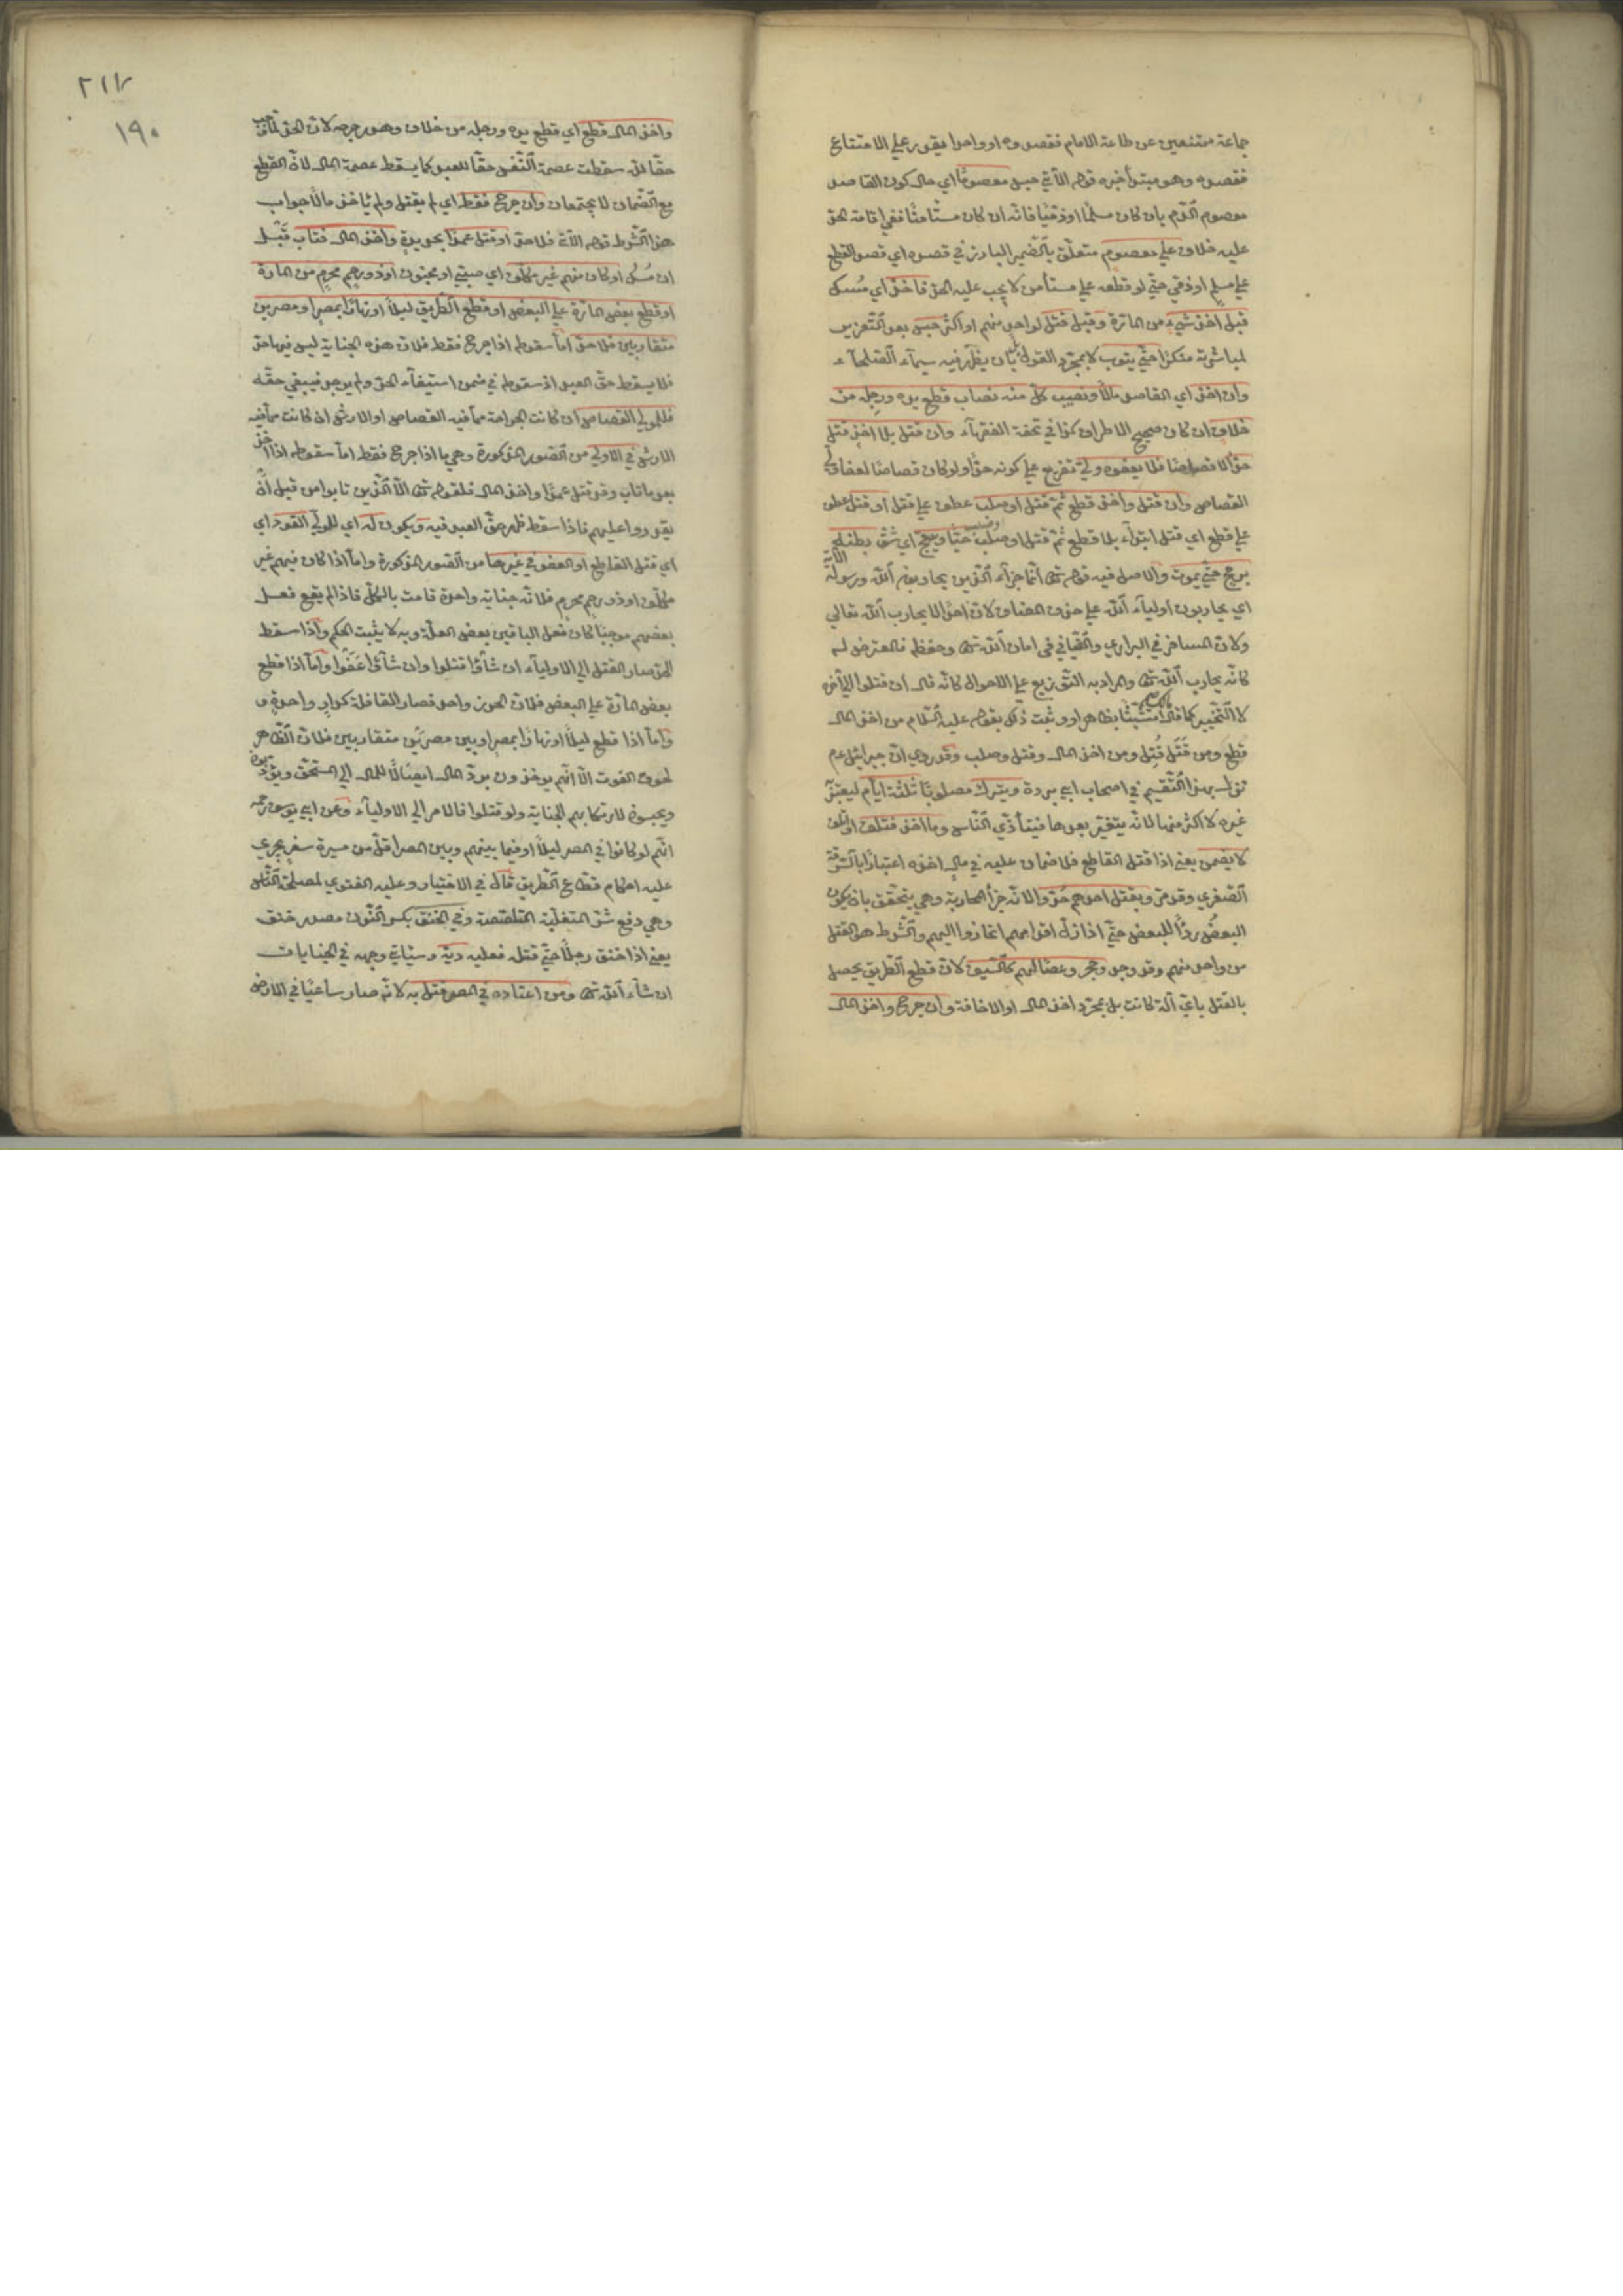 جماعة ممتنعين عن طاعة الامام فقصدوه او واحدا يقدر علي الامتناع
فقصده وهو مبتدأ خبره قوله الآتي حبس معصومًا اي حال كون القاصد
معصوم الدّم بان كان مسلمًا او ذميًّا فانّه ان كان مستأمنًا ففي اقامة الحد
عليه خلاف علي معصوم متعلّق بالضّمير البارز في قصده اي قصد القطع
علي مسلم او ذمّي حتّي لو قطعه علي مستأمن لا يجب عليه الحد فاخذ اي مُسك
قبل اخذ شيء من المارّة وقبل قتل لواحد منهم او اكثر حبس بعد التّعزير
لمباشرته منكرًا حتّي يتوب لا بمجرّد القول بل بان يظهر فيه سيمآء الصّلحآء
وان اخذ اي القاصد مالًا ونصيب كلّ منه نصاب قطع يده ورجله من
خلاف ان كان صحيح الاطراف كذا في تحفة الفقهآء وان قتل بلا اخذ قتل
حدّا لا قصاصًا فلا يعفوه وليّ تفريع علي كونه حدًّا ولو كان قصاصًا لعفا ولي
القصاص وان قتل واخذ قطع ثمّ قتل او صلب عطف علي قتل او قتل عطف
علي قطع اي قتل ابتدآء بلا قطع ثمّ قتل او صلب حيًّا ويبعج اي شق بطنه
برمح حتّي يموت والاصل فيه قوله تعالى انّما جزآء الّذين يحاربون اللّه ورسوله الآية
اي يحاربون اوليآء اللّه علي حذف المضاف لان احدًا لا يحارب اللّه تعالي
ولانّ المسافر في البراري والفيافي في امان اللّه تعالى وحفظه فالمتعرّض له
كانّه يحارب اللّه تعالى والمراد به التّوزيع علي الاحوال كانّه قال ان قتلوا الي آخره
لا التّخيير كما قال مالك متشبّثًا بظاهر او وثبت ذلك بقوله عليه السّلام من اخذ المال
قطع ومن قَتَل قُتِل ومن اخذ المال وقتل وصلب وقد روي انّ جبرائيل عم
نزل بهذا التّقسيم في اصحاب ابي بردة ويترك مصلوبًا ثلثة ايّام ليعتبر
غيره لا اكثر منها لانّه يتغيّر بعدها فيتأذّي النّاس وما اخذ فتلف او اتلف
لا يضمن يعني اذا قتل القاطع فلا ضمان عليه في مال اخذه اعتبارًا بالسّرقة
الصّغري وقد مرّ وبقتل احدهم حُدّوا لانّه جزآء المحاربة وهي يتحقّق بان يكون
البعض ردْءًا للبعض حتّي اذا زلّ اقدامهم انحازوا اليهم والشّرط هو القتل
من واحد منهم وقد وجد وحجر وعصًا لهم كالسّيف لانّ قطع الطّريق يحصل
بالقتل بايّ آلة كانت بل بمجرّد اخذ المال او الاخافة وان جرح واخذ المال
٢١٧
١٩٠
واخذ المال قطع اي قطع يده ورجله من خلاف وهدر جرحه لانّ الحدّ لمّا وجب
حقًّا للّه سقطت عصمة النّفس حقًّا للعبد كما يسقط عصمة المال لانّ القطع
مع الضّمان لا يجتمعان وان جرح فقط اي لم يقتل ولم يأخذ مالًا جواب
هذا الشّرط قوله الآتي فلا حد او قتل عمدًا بحديدة واخذ المال فتاب قَبل
ان مُسك او كان منهم غير مكلّف اي صبيّ او مجنون او ذو رحم محرم من المارة
او قطع بعض المارّة علي البعض او قطع الطّريق ليلًا او نهارًا بمصر او مصرين
متقاربين فلا حد امّا سقوطه اذا جرح فقط فلانّ هذه الجناية ليس فيها حد
فلا يسقط حقّ العبد اذ سقوطه في ضمن استيفآء الحد ولم يوجد فيبقي حقّه
فللولي القصاص ان كانت الجراحة ممّا فيه القصاص او الارش ان كانت ممّا فيه
الارش في الاولي من الصّور المذكورة وهي ما اذا جرح فقط امّا سقوطه اذا اخذ
بعد ما تاب وقد قتل عمدًا واخذ المال فلقوله تعالى الّا الّذين تابوا من قبل ان
يقدروا عليهم فاذا سقط ظهر حقّ العبد فيه ويكون له اي للوليّ القود اي
اي قتل القاطع او العفو في غيرها من الصّور المذكورة وامّا اذا كان فيهم غير
مكلّف او ذو رحم محرم فلانّه جناية واحدة قامت بالكلّ فاذا لم يقع فعل
بعضهم موجبًا كان فعل الباقين بعض العلّة وبه لا يثبت الحكم واذا سقط
الحد صار القتل الي الاوليآء ان شآؤا قتلوا وان شآؤا عَفَوا وامّا اذا قطع
بعض المارّة علي البعض فلانّ الحرز واحد فصار القافلة كدار واحدة و
وامّا اذا قطع ليلًا او نهارًا بمصر او بين مصرَين متقاربين فلانّ الظّاهر
لحوق الغوث الّا انّهم يؤخذون بردّ المال ايصالًا للمال الي المستحقّ ويؤدّبون
ويحبسون لارتكابهم الجناية ولو قتلوا فالامر الي الاوليآء وعن ابي يوسف رحمه
انّهم لو كانوا في المصر ليلًا او فيما بينهم وبين المصر اقلّ من مسيرة سفر يجري
عليه احكام قطّاع الطّريق قال في الاختيار وعليه الفتوي لمصلحة النّاس
وهي دفع شرّ المتغلّبة المتلصّصة وفي الخنق بكسر النّون مصدر خنق
يعني اذا خنق رجلًا حتّي قتله فعليه ديّة وسيأتي وجهه في الجنايات
ان شآء اللّه تعالى ومن اعتاده في المصر قتل به لانّه صار ساعيًا في الارض